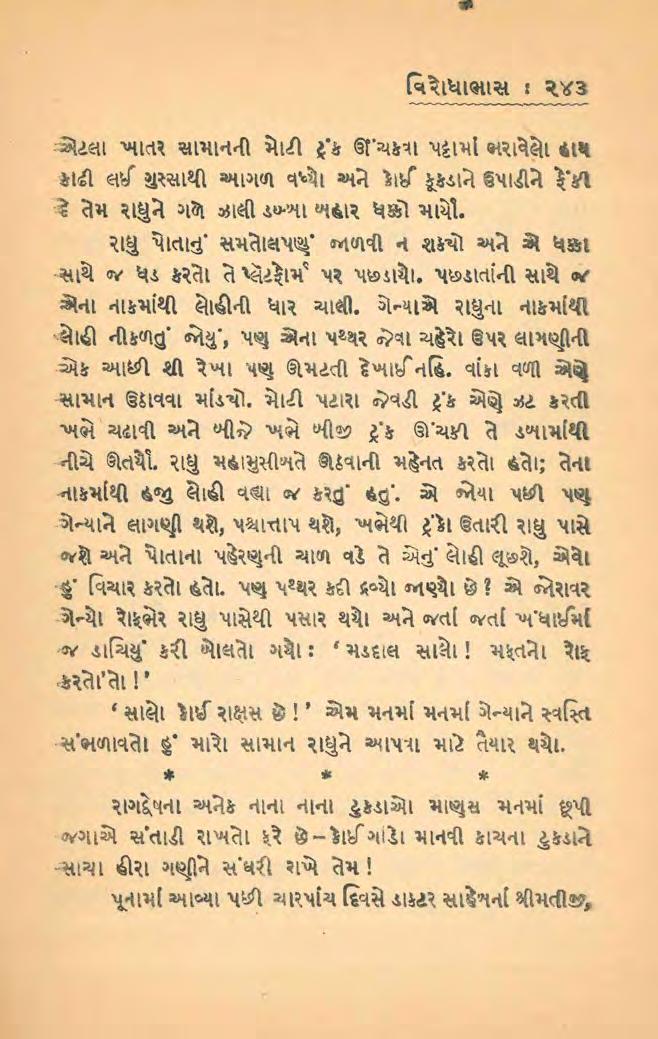 વિરોધાભાસ : ૨૪૩
એટલા ખાતર સામાનની મોટી ટ્રંક ઊંચકવા પટ્ટામાં ભરાવેલો હાથ
કાઢી લઈ ગુસ્સાથી આગળ વધ્યો અને કોઈ કૂકડાને ઉપાડીને ફેંકી
દે તેમ રાધુને ગળે ઝાલી ડબ્બા બહાર ધક્કો માર્યો.
રાધુ પોતાનું સમતોલપણું જાળવી ન શક્યો અને એ ધક્કા
સાથે જ ધડ કરતો તે પ્લૅટફોર્મ પર પછડાયો. પછડાતાંની સાથે જ
એના નાકમાંથી લોહીની ધાર ચાલી. ગેન્યાએ રાધુના નાકમાંથી
લોહી નીકળતું જોયું, પણ એના પથ્થર જેવા ચહેરા ઉપર લાગણીની
એક આછી શી રેખા પણ ઊમટતી દેખાઈ નહિ. વાંકા વળી એણે
સામાન ઉઠાવવા માંડ્યો. મોટી પટારા જેવડી ટ્રંક એણે ઝટ કરતી
ખભે ચઢાવી અને બીજે ખભે બીજી ટ્રંક ઊંચકી તે ડબામાંથી
નીચે ઊતર્યો. રાધુ મહામુસીબતે ઊઠવાની મહેનત કરતો હતો; તેના
નાકમાંથી હજુ લોહી વહ્યા જ કરતું હતું. એ જોયા પછી પણ
ગેન્યાને લાગણી થશે, પશ્ચાત્તાપ થશે, ખભેથી ટ્રંકો ઉતારી રાધુ પાસે
જશે અને પોતાના પહેરણની ચાળ વડે તે એનું લોહી લૂછશે, એવો
હું વિચાર કરતો હતો. પણ પથ્થર કદી દ્રવ્યો જાણ્યો છે? એ જોરાવર
ગેન્યો રોફભેર રાધુ પાસેથી પસાર થયો અને જતાં જતાં ખંધાઈમાં
જ ડાચિયું કરી બોલતો ગયો: ‘મડદાલ સાલો! મફતનો રોફ
કરતો'તો!’
‘સાલો કોઈ રાક્ષસ છે!’ એમ મનમાં મનમાં ગેન્યાને સ્વસ્તિ
સંભળાવતો હું મારો સામાન રાધુને આપવા માટે તૈયાર થયો.
* * *
રાગદ્વેષના અનેક નાના નાના ટુકડાઓ માણસ મનમાં છૂપી
જગાએ સંતાડી રાખતો ફરે છે – કોઈ ગાંડો માનવી કાચના ટુકડાને
સાચા હીરા ગણીને સંઘરી રાખે તેમ!
પૂનામાં આવ્યા પછી ચારપાંચ દિવસે ડાક્ટર સાહેબનાં શ્રીમતીજી,